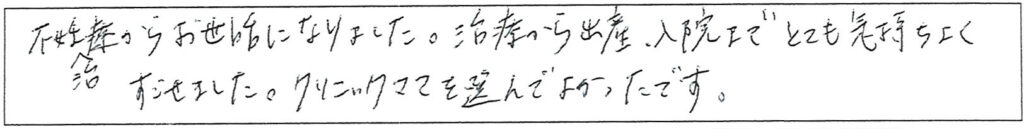 不妊治療からお世話になりました。治療から出産、入院までとても気持ちよく
すごせました。クリニックママを選んでよかったです。